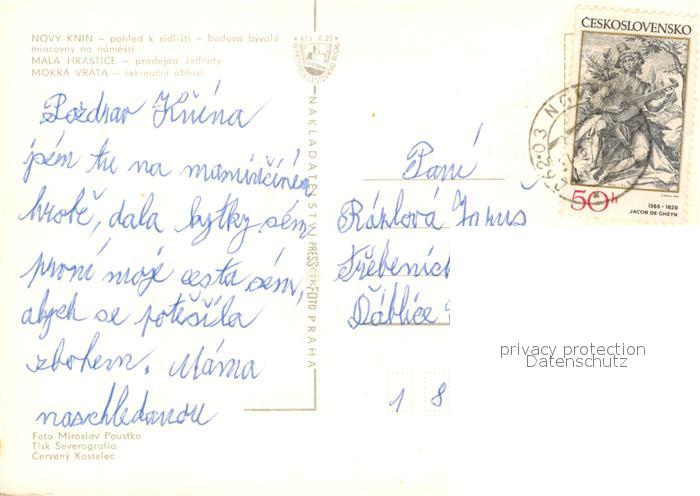 NOVÝ KNÍN – pohled k sídlišti – budova bývalé
mincovny na náměstí
MALÁ HRAŠTICE – prodejna Jednoty
MOKRÁ VRATA – rekreační oblast
KčS 0,20
ČESKOSLOVENSKO
50 h
1565 - 1629
JACOB DE GHEYN
262 03 NO
NAKLADATELSTVÍ PRESSFOTO PRAHA
Pozdrav Knína
jsem tu na maminčiném
hrobě, dala kytky sém
první moje cesta sém,
abych se potěšila
zbohem. Máma
naschledanou
Paní
Ráklová
Třebenick
Ďáblice
1 8
privacy protection
Datenschutz
Foto Miroslav Poustka
Tisk Severografia
Červený Kostelec